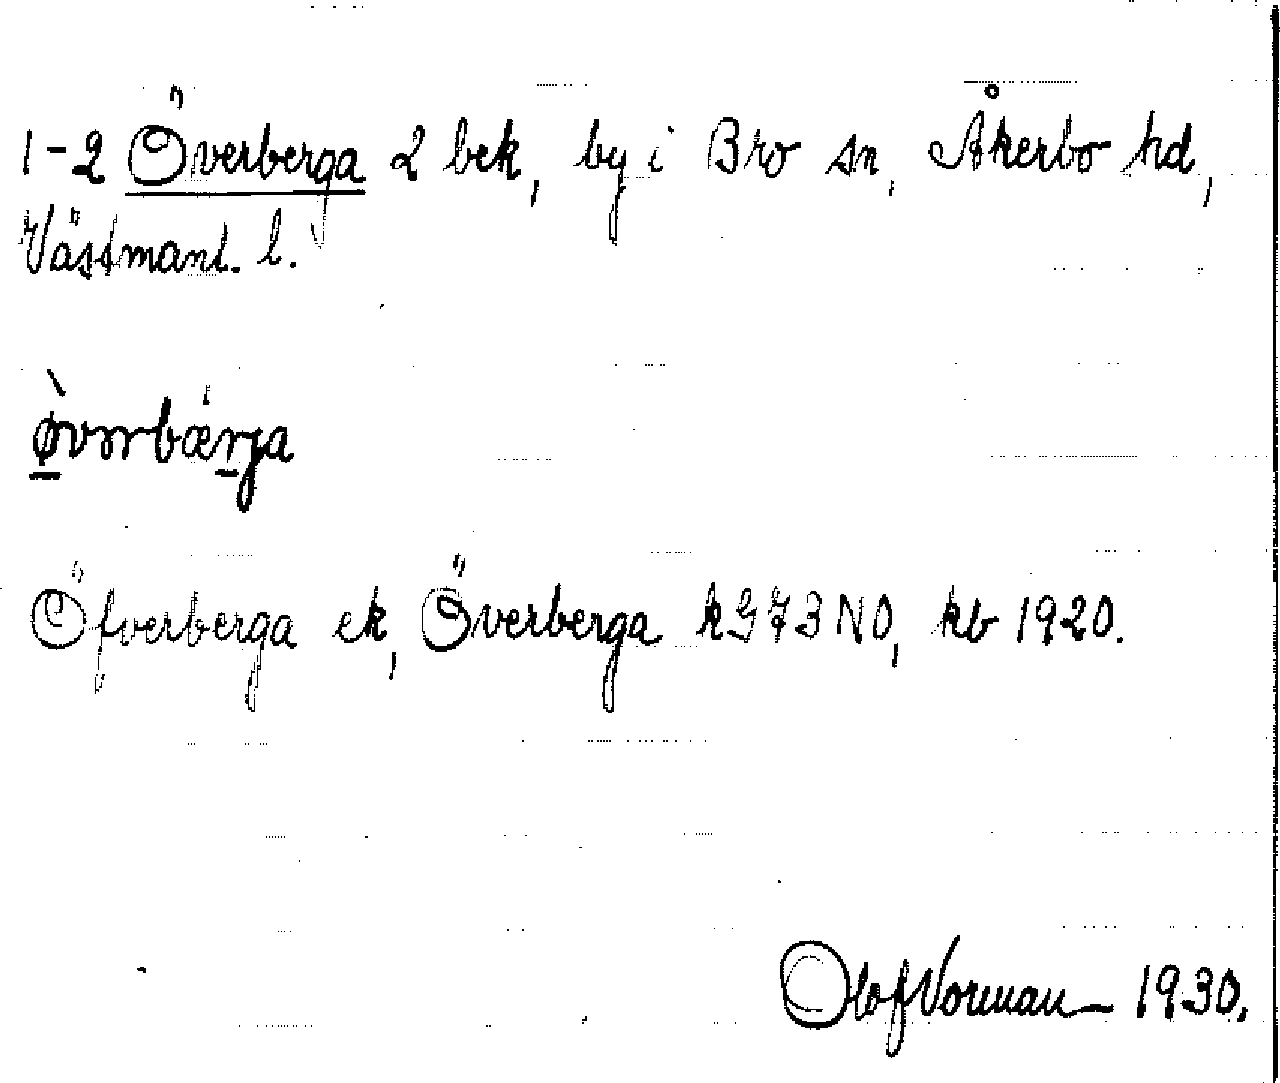 1-2 Överberga 2 bek, by i Bro sn, Åkerbo hd,
Västmanl. l.
Öfverberga ek, Överberga kG73NO, kb 1920.
Olof Norman 1930.